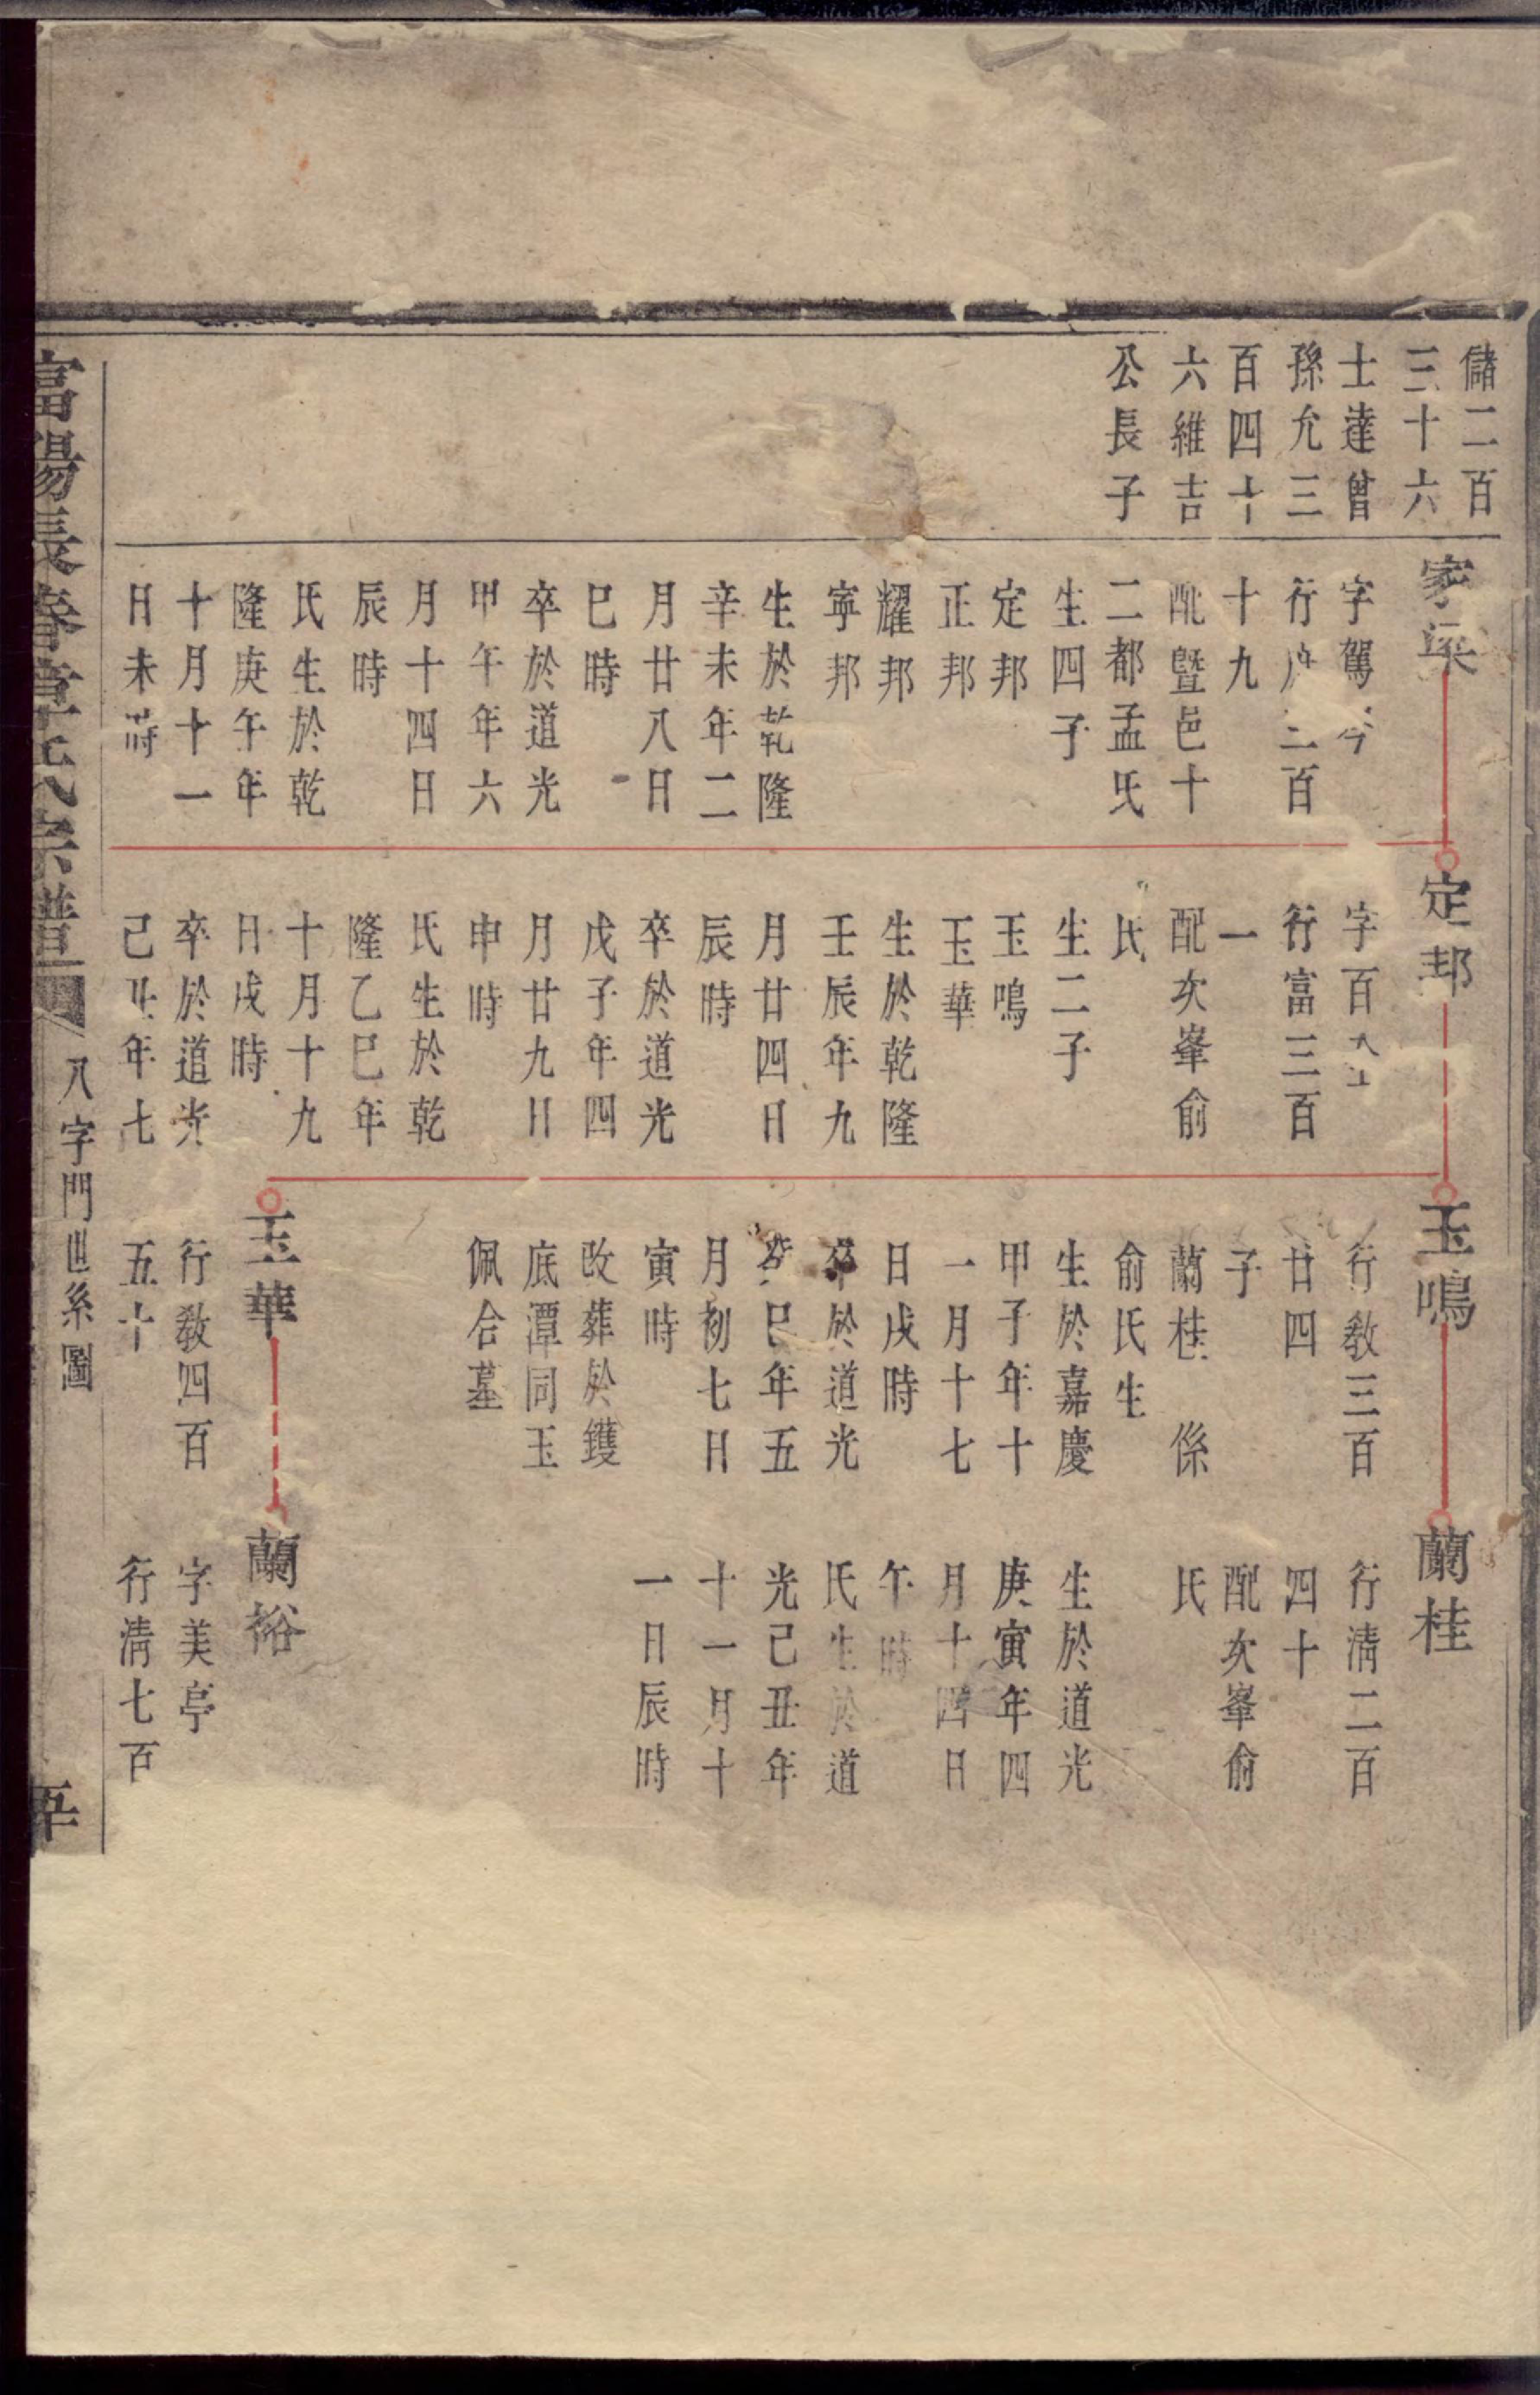 儲二百
三十六
士達曾
孫允三
百四十
六維吉
公長子
家
字駕
行 二百
十九
配暨邑十
二都孟氏
生四子
定邦
正邦
耀邦
寧邦
生於乾隆
辛未年二
月廿八日
巳時
卒於道光
甲午年六
月十四日
辰時
氏生於乾
隆庚午年
十月十一
日未時
定邦
字百
行富三百
一
配次峯俞
氏
生二子
玉鳴
玉華
生於乾隆
壬辰年九
月廿四日
辰時
卒於道光
戊子年四
月廿九日
申時
氏生於乾
隆乙巳年
十月十九
日戌時
卒於道光
己丑年七
玉鳴
行敎三百
廿四
子
蘭桂 係
俞氏生
生於嘉慶
甲子年十
一月十七
日戌時
卒於道光
癸巳年五
月初七日
寅時
改葬於鑊
底潭同玉
佩合墓
玉華
行敎四百
五十
蘭桂
行清二百
四十
配次峯俞
氏
生於道光
庚寅年四
月十四日
午時
氏生於道
光己丑年
十一月十
一日辰時
蘭裕
字美亭
行清七百
富陽長春堂 氏宗譜
八字門世系圖
五